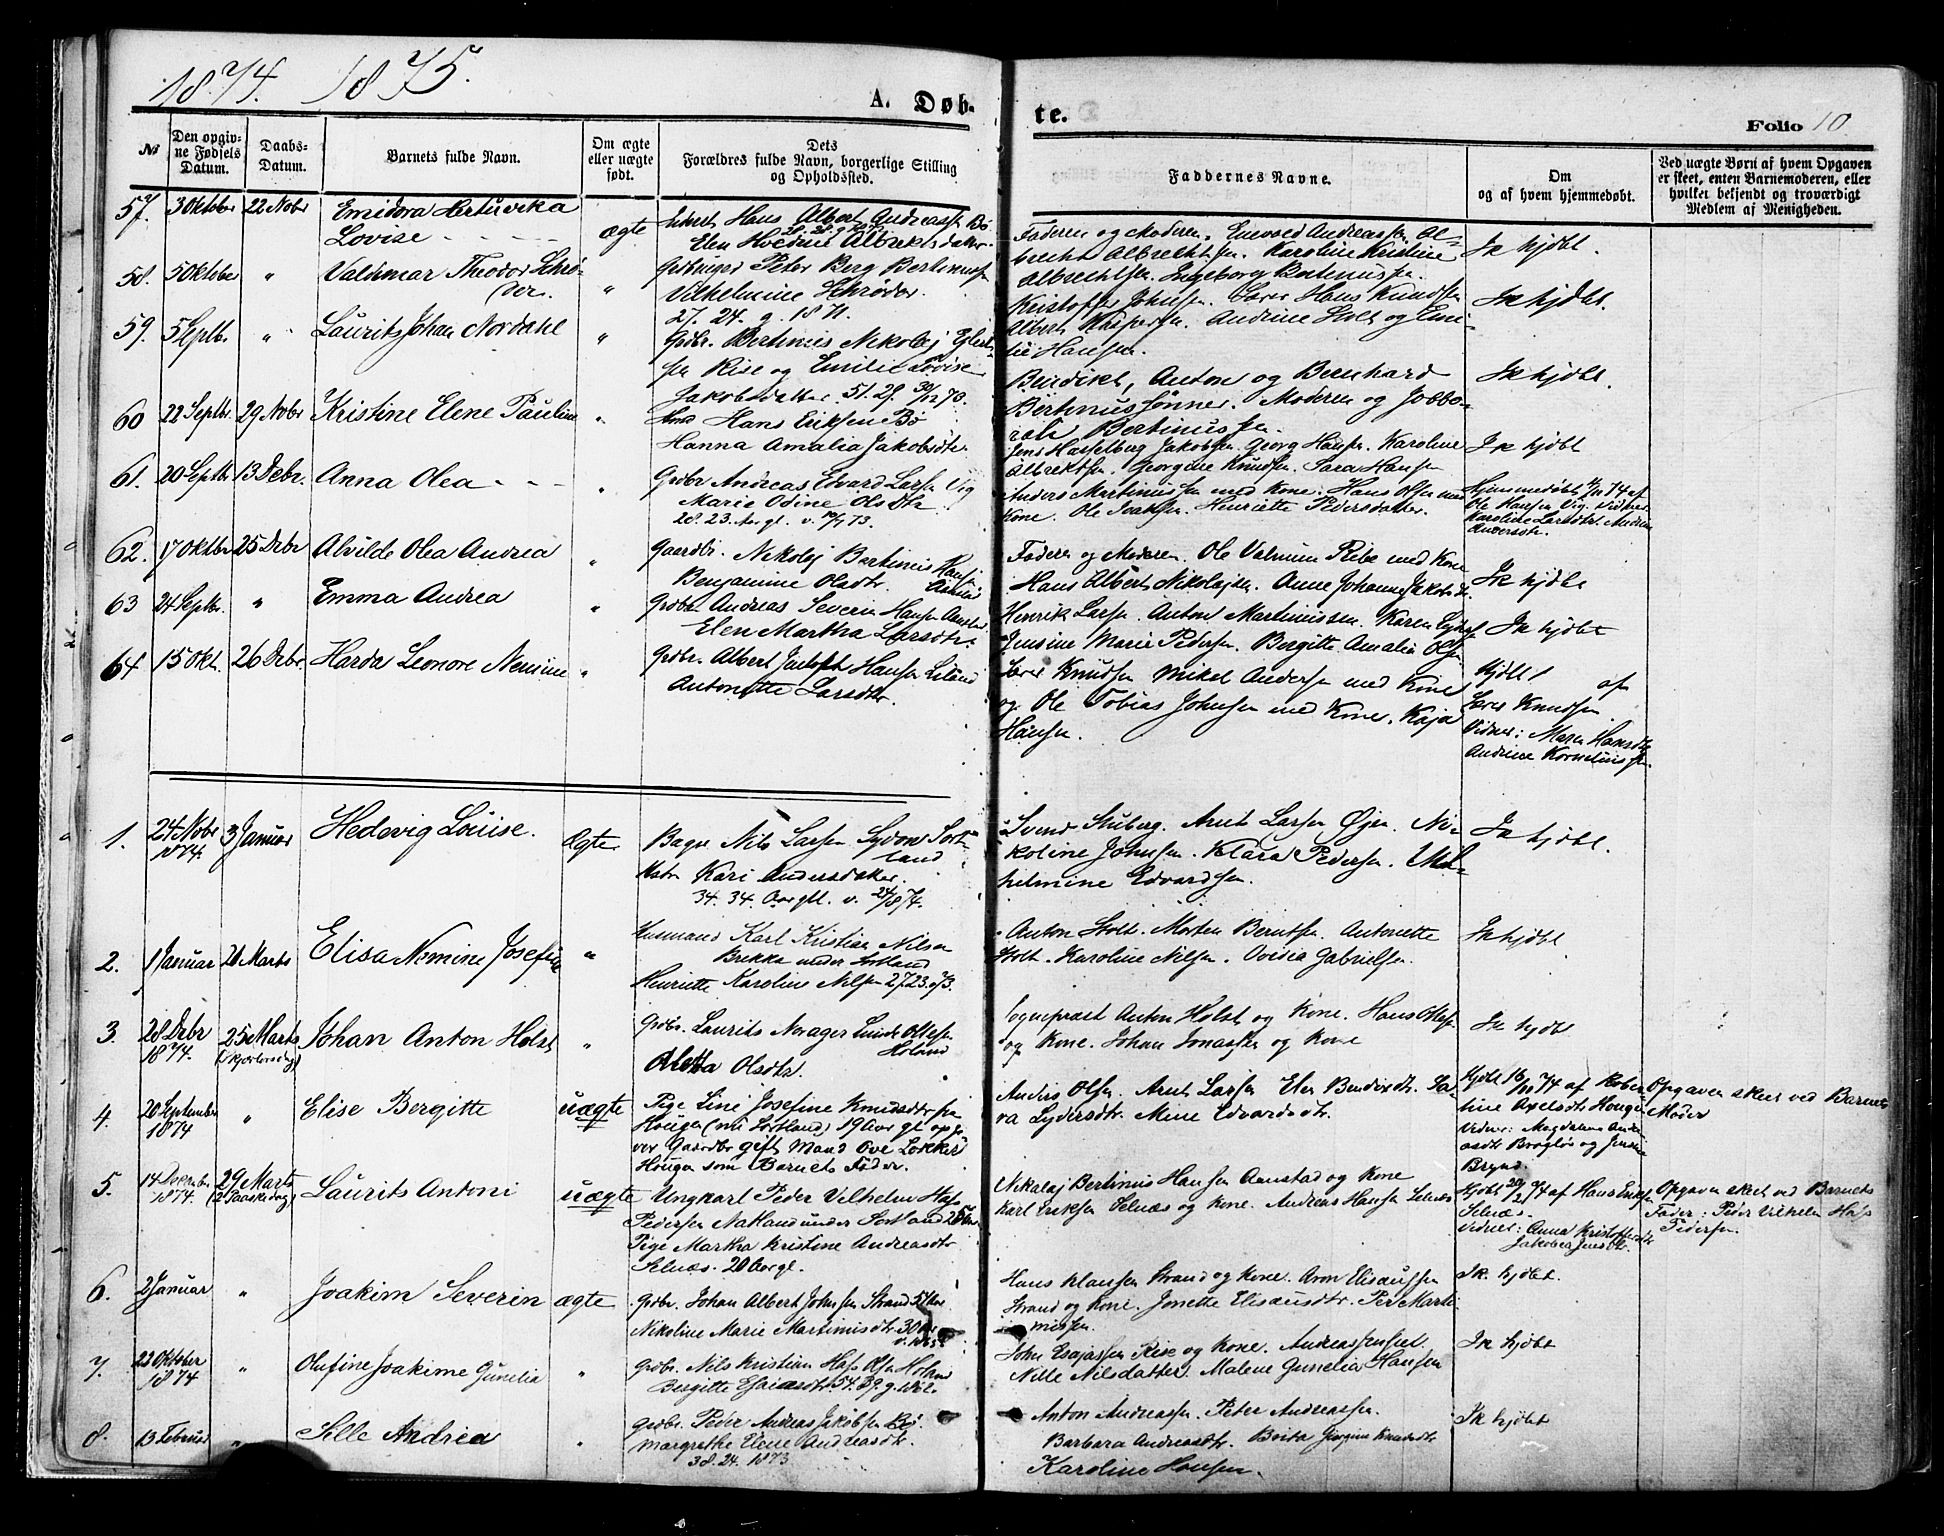 1874. 1875.
A. Døb-
te.
Folio 10
No
Den opgiv-
ne Fødsels
Datum.
Daabs-
Datum.
Barnets fulde Navn.
Om ægte
eller uægte
født.
Dets
Forældres fulde Navn, borgerlige Stilling
og Opholdssted.
Faddernes Navne.
Om
og af hvem hjemmedøbt.
Ved uægte Børn af hvem Opgaven
er skeet, enten Barnemoderen, eller
hvilket bekjendt og troværdigt
Medlem af Menigheden.
57. 3 Oktober 22 Nobr
Lovise
ægte
Hans Albert Andreassen Bø
Elen Albrektsdatter
Faderen og Moderen. Andreassen Al-
brecht Albrechtsen. Karoline Kristine
Albrechtsen. Ingeborg
Ik hjdbt.
58. 5 Oktober "
Valdimar Theodor Schrø-
der.
"
Peter Berg
Vilhelmine Schrøder.
27. 24. g. 1871.
Kristoffer Johnsen. Lærer Hans Knudsen
Albert Kaspersen. Andrine Holt og Emi-
lie Hansen.
Ik hjdbt.
59. 5 Septb. "
Laurits Johan Nordahl
"
Gdbr. Bertinus Nikolaj
sen Rise og Emilie Lovise
Jakobsdatter 51. 29. 30/12 73.
Bendikt, Anton og Bernhard
Bertinussønner. Moderen og
Bertinussen.
Ik hjdbt.
60 22 Septbr. 29 Nobr
Kristine Elene Pauline
"
Hans Eriksen Bø
Hanna Amalia Jakobsdtr.
Jens Hasselberg Jakobsen. Georg Hansen. Karoline
Albrektsen. Georgine Knudsen. Sara Hansen
Ik hjdbt
61. 20 Septbr 13 Debr.
Anna Olea
"
Gdbr Andreas Edvard Larsen Vig
Marie Odine Olsdtr
28. 23. Aar gl. v.
Anders Martinussen med Kone. Hans Olsen med
Kone. Ole Isaksen. Henriette Pedersdatter.
Hjemmedøbt 74 af
Ole Hansen Vig. Vidner
Karoline Larsdtr.
Andersdtr.
62. 17 Oktbr 25 Debr
Alvilde Olea Andrea
"
Gaardbr. Nikolaj Bertinus Hansen
Benjamine Olsdtr.
Faderen og Moderen. Ole Ribe med Kone
Hans Albert Nikolajsen. Anne Johanne Jakobsdtr.
Ik hjdbt
63 24 Septbr. "
Emma Andrea
"
Gdbr Andreas Severin Hansen
Elen Martha Larsdtr.
Henrik Larsen. Anton Martinussen. Karen
Jensine Marie Pedersen. Bergitte Amalia Olsen
Ik hjdbt
64 15 Okt. 26 Debr
Harda Leonore Nemine
"
Gdbr. Albert Hansen
Antonette Larsdtr.
Lærer Knudsen Mikal Andersen med Kone
og Ole Tobias Johnsen med Kone. Kaja
Hansen.
Hjdbt af
Lærer Knudsen.
Vidner: Maren Hansdtr
Andrine Korneliussen.
1. 24 Nobr
1874.
3 Januar
Hedevig Louise.
Ægte
Bager Nils Larsen Sort-
land
Kari Andersdatter.
34. 34. Aar gl. v. 24/8 74.
Svend Stuberg. Arnt Larsen Øjen. Ni-
koline Johnsen. Klara Pedersen. Vil-
helmine Edvardsen.
Ik hjdbt.
2. 1 Januar 20 Marts
Elisa Nemine Josefine
"
Husmand Karl Kristian Nilsen
Brekka under Sortland
Henriette Karoline Nilsen 27. 23. 73.
Anton Holt. Morten Berntsen. Antonette
Holt. Karoline Nilsen. Ovidia Gabrielsen.
Ik hjdbt
3. 28 Debr
1874.
25 Marts
Johan Anton Holst
"
Gdbr. Laurits Norager Lunde Ottesen
Holand
Aletta Olsdtr.
Sogneprest Anton Holst og Kone. Hans Ottesen
og Kone. Johan Jonassen og Kone
Ik hjdbt
4. 20 September
1874
"
Elise Bergitte
uægte
Pige Line Josefine Knudsdtr fra
Hougen (nu Sortland) 19 Aar gl. opgi-
ver Gaardbr gift Mand Ove Lokkert
Hougen som Barnets Fader.
Anders Olsen. Arnt Larsen. Elen Bendixsdtr. Sa-
ra Lydersdtr. Mine Edvardsdtr.
Hjdbt 16/10 74 af Kober-
tine Axelsdtr Hougen
Vidner: Magdalena Andre-
asdtr Brogløs og
Opgaven skeet ved Barnets
Moder
5. 14 December
1874.
29 Marts
(2 Paaskedag)
Laurits Antoni
uægte
Ungkarl Peder Vilhelm Hass
Pedersen Natland under Sortland
Pige Martha Kristine Andreasdtr
Selnæs. 20 Aar gl.
Nikolaj Bertinus Hansen Aunstad og Kone
Karl Eriksen Selnæs og Kone. Andreas Hansen Selnæs
Hjdbt 20/12 74 af Hans Eriksen
Selnæs.
Vidner: Anna Kristoffersdtr
Jakobea Jensdtr.
Opgaven skeet ved Barnets
Fader: Peder Vilhelm Hass
Pedersen.
6. 2 Januar "
Joakim Severin
ægte
Gdbr. Johan Albert Johnsen Strand
Nikoline Marie Martinusdtr. 30 Aar
Hans Klausen Strand og Kone. Aron Elisæussen
Strand og Kone. Jonette Elisæusdtr. Per Marti-
nussen.
Ik. hjdbt.
7. 22 Oktober
1874
"
Olufine Joakime Gunelia
"
Gdbr. Nils Kristian Hass Olsen Holand
Bergitte Esaiasdtr. 54. 39. g.
John Esajassen Rise og Kone.
Nille Nilsdatter. Malene Gunelia Hansen
Ik hjdbt
8. 13 Februar "
Sille Andrea
"
Gdbr. Peder Andreas Jakobsen Bø.
Margrethe Elene Andreasdtr.
38. 24. 1873
Anton Andreassen. Peter Andreassen.
Barbara Andreasdtr. Berta Jørgine Knudsdtr
Karoline Hansen.
Ik hjdbt